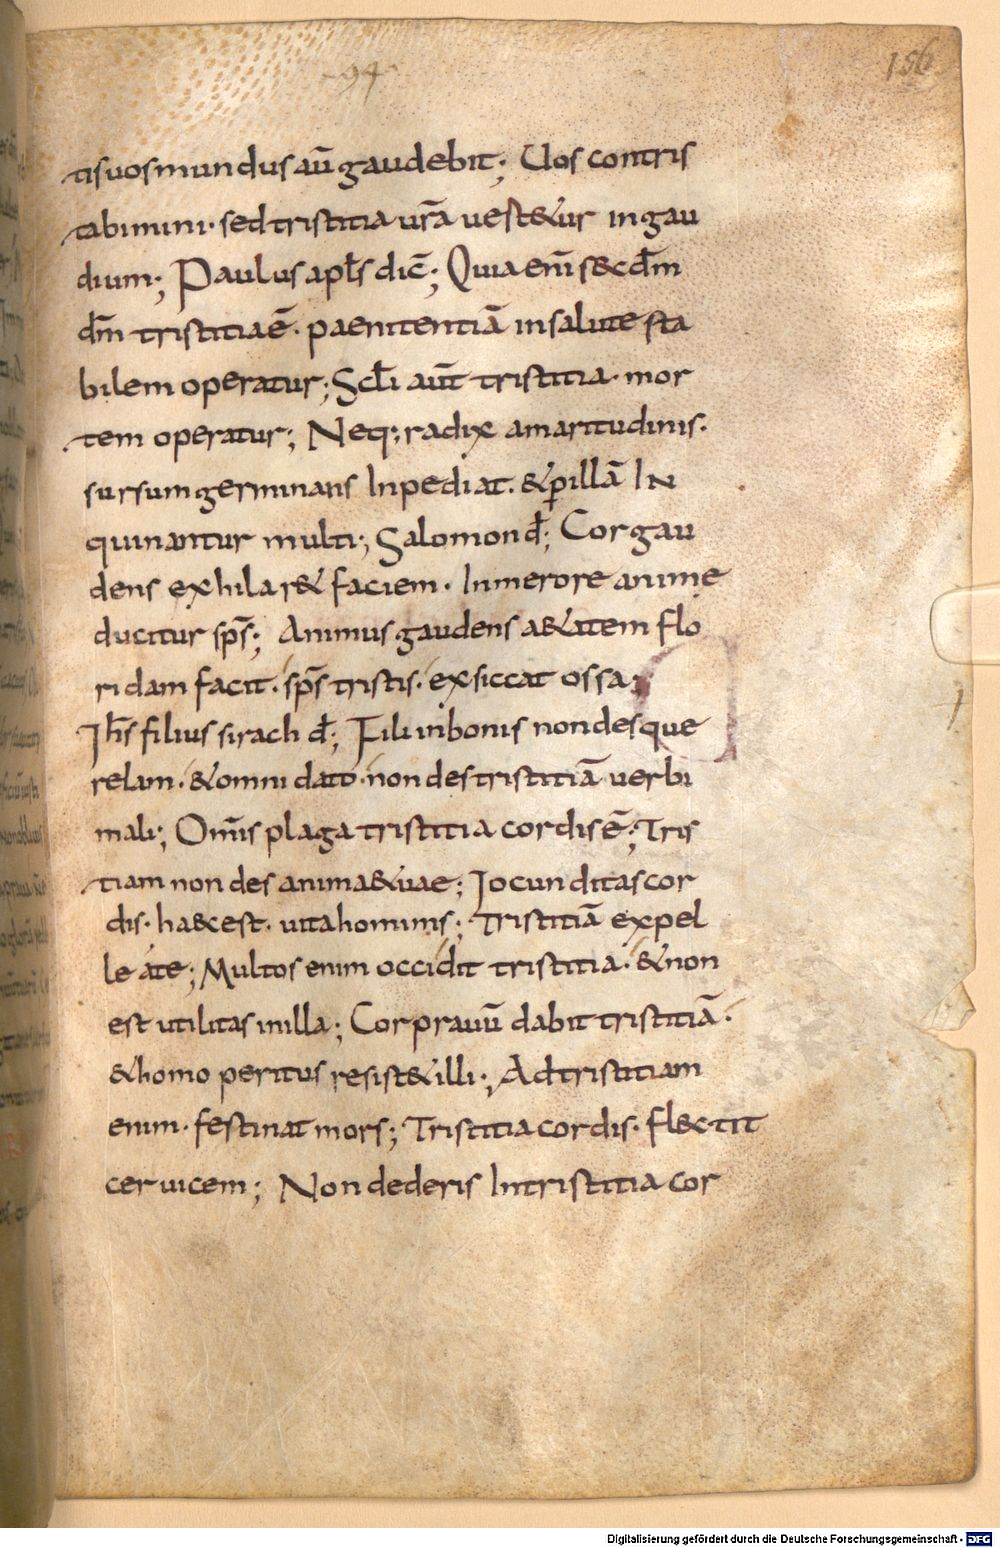 94
156
tis vos mundus aū gaudebit; Uos contris
tabimini· sed tristitia ur̄a uest&ur in gau
dium; Paulus apl̄s dic̄; Quia eni̅ s&cd̄m
dm̄ tristitia ē· paenitentiā in salute sta
bilem operatur; Scl̄i aut̄ tristitia· mor
tem operatur; Neq; radix amaritudinis·
sursum germinans Inpediat· & ꝑ illā IN
quinantur multi; Salomon d̄; Cor gau
dens exhilar& faciem· In merore anime
ducitur sps̄; Animus gaudens a&atem flo
ridam facit· sps̄ tristis· exsiccat ossa;
Ih̄s filius sirach d̄; Fili in bonis non des que
relam· & omni dato· non des tristitiā uerbi
mali; Om̄is plaga tristitia cordis ē; Tris
tiam non des anima& uae; Jocunditas cor
dis· haec est· uita hominis; Tristitiā expel
le a te; Multos enim occidit tristitia· & non
est utilitas in illa; Cor prauū dabit tristitiā·
& homo peritus resist& illi; Ad tristitiam
enim· festinat mors; Tristitia cordis· flectit
ceruicem; Non dederis In tristitia cor
Digitalisierung gefördert durch die Deutsche Forschungsgemeinschaft - DFG